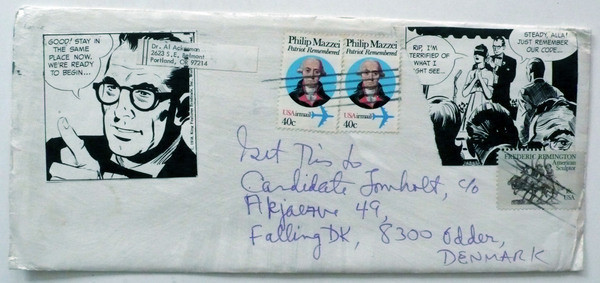 GOOD! STAY IN
THE SAME
PLACE NOW,
WE'RE READY
TO BEGIN...
Dr. Al Ackerman
2623 S.E. Belmont
Portland, OR 97214
Philip Mazzei
Patriot Remembered
USAirmail
40c
Philip Mazzei
Patriot Remembered
USAirmail
40c
RIP, I'M
TERRIFIED OF
WHAT I
SEE...
STEADY, ALLA!
JUST REMEMBER
OUR CODE...
FREDERIC REMINGTON
American
Sculptor
USA
Get This to
Candidate Jomholt, c/o
49,
Falling DK, 8300 Odder,
DENMARK